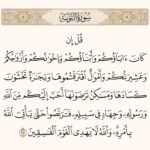 سورة التوبة
قل إن
كان ءاباؤكم وأبناؤكم وإخوانكم وأزواجكم
وعشيرتكم وأموال اقترفتموها وتجارة تخشون
كسادها ومساكن ترضونها أحب إليكم من الله
ورسوله وجهاد في سبيله فتربصوا حتى يأتي الله
بأمره والله لا يهدي القوم الفاسقين